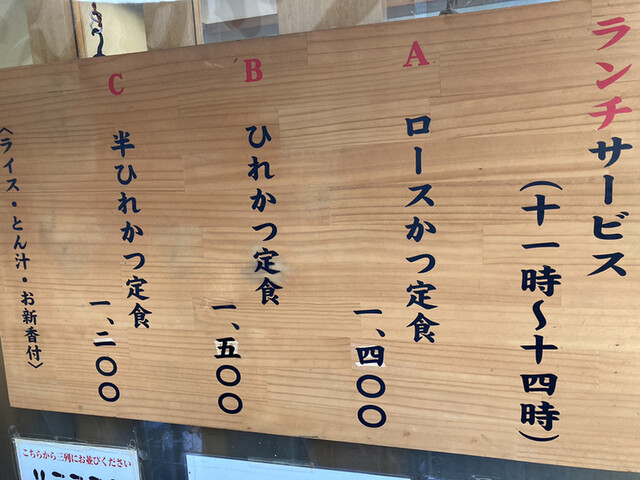 ランチサービス
（十一時～十四時）
A
ロースかつ定食
一、四〇〇
B
ひれかつ定食
一、五〇〇
C
半ひれかつ定食
一、二〇〇
〈ライス・とん汁・お新香付〉
こちらから三列にお並びください